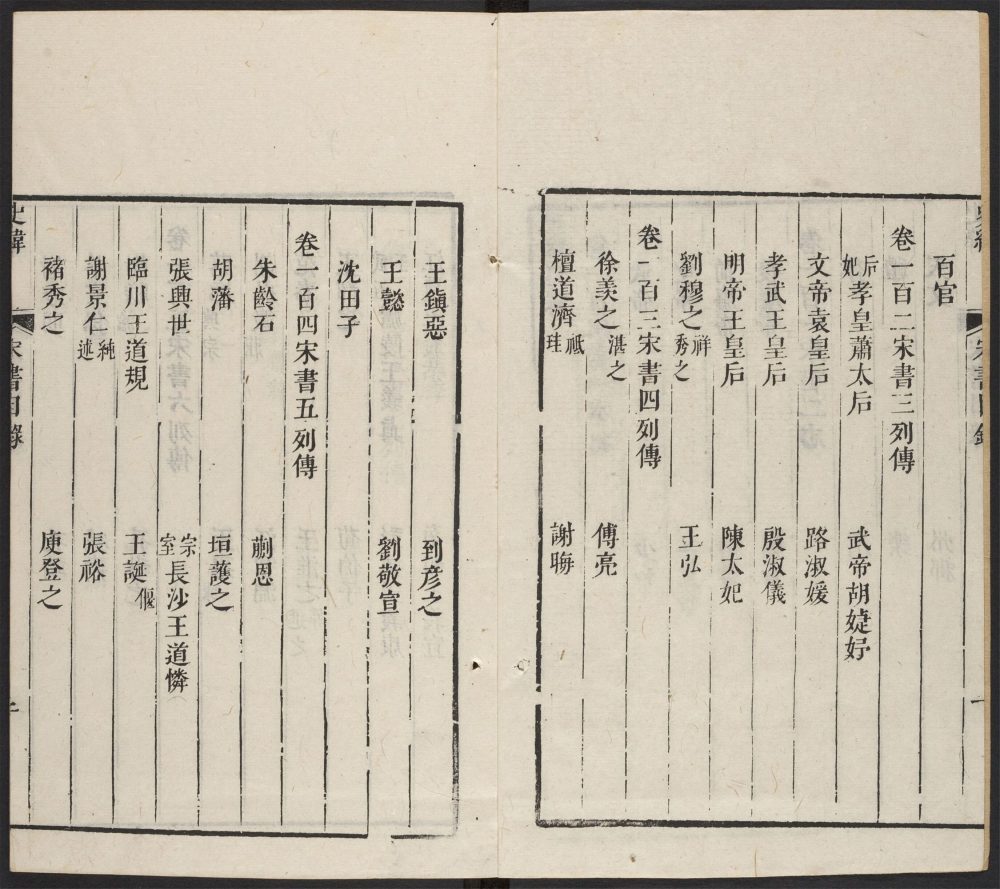 百官
卷一百二宋書三列傳
后妃孝皇蕭太后 武帝胡婕妤
文帝袁皇后 路淑媛
孝武王皇后 殷淑儀
明帝王皇后 陳太妃
劉穆之祥秀之 王弘
卷一百三宋書四列傳
徐羨之湛之 傅亮
檀道濟祗珪 謝晦
王鎭惡 到彦之
王懿 劉敬宣
沈田子
卷一百四宋書五列傳
朱齡石 蒯恩
胡藩 垣護之
張興世 宗室長沙王道憐
臨川王道規 王誕偃
謝景仁純述 張裕
褚秀之 庾登之
史緯 宋書目錄